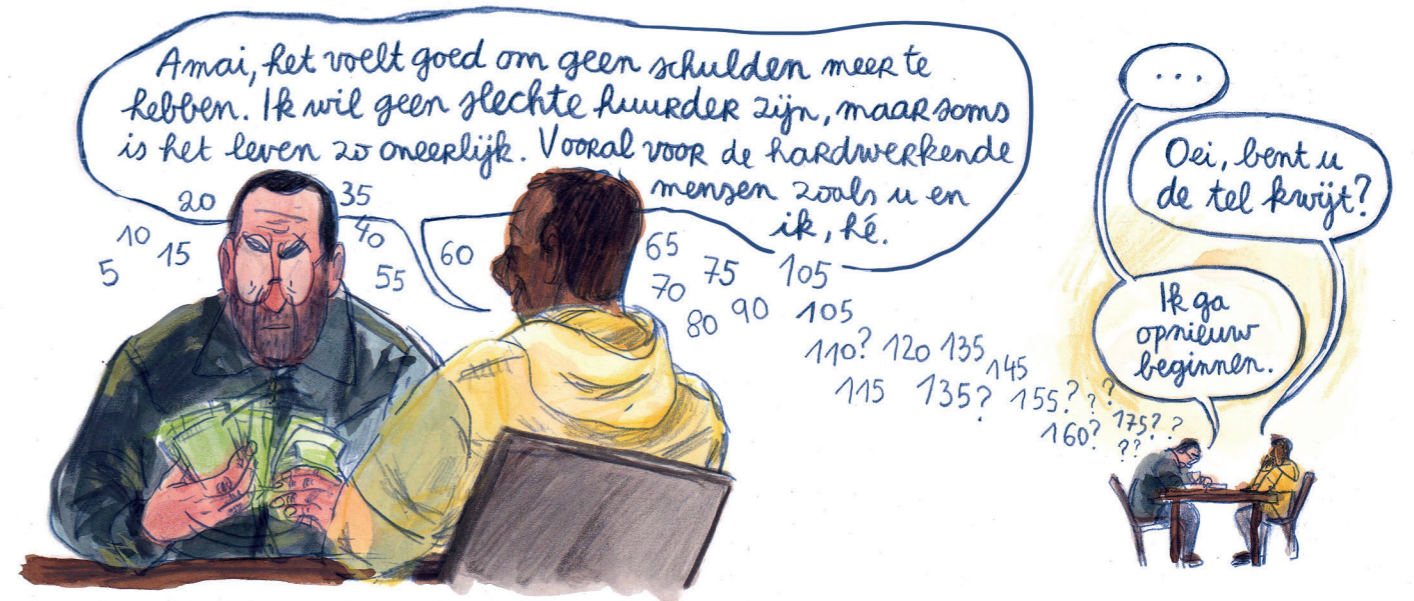 Amai, het voelt goed om geen schulden meer te
hebben. Ik wil geen slechte huurder zijn, maar soms
is het leven zo oneerlijk. Vooral voor de hardwerkende
mensen zoals u en
ik, hé.
5
10
15
20
35
40
55
60
65
70
75
80
90
105
105
110?
115
120
135
135?
145
155?
160?
175?
? ?
?
??
...
Oei, bent u
de tel kwijt?
Ik ga
opnieuw
beginnen.